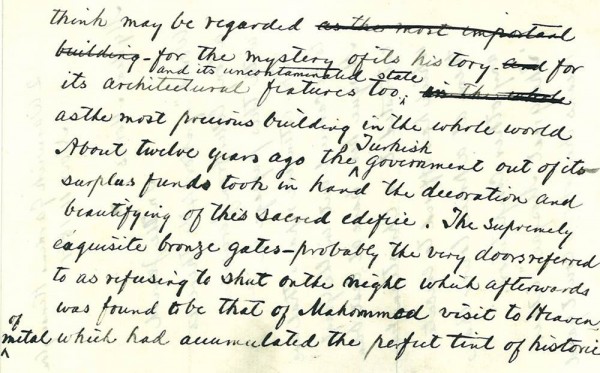 think may be regarded as the most important
building - for the mystery of its history - and for
and its uncontaminated state
its architectural features too, in the whole
as the most precious building in the whole world
Turkish
About twelve years ago the government out of its
surplus funds took in hand the decoration and
beautifying of this sacred edifice. The supremely
exquisite bronze gates - probably the very doors referred
to as refusing to shut on the night which afterwards
was found to be that of Mahommed visit to Heaven,
of
metal which had accumulated the perfect tint of historic